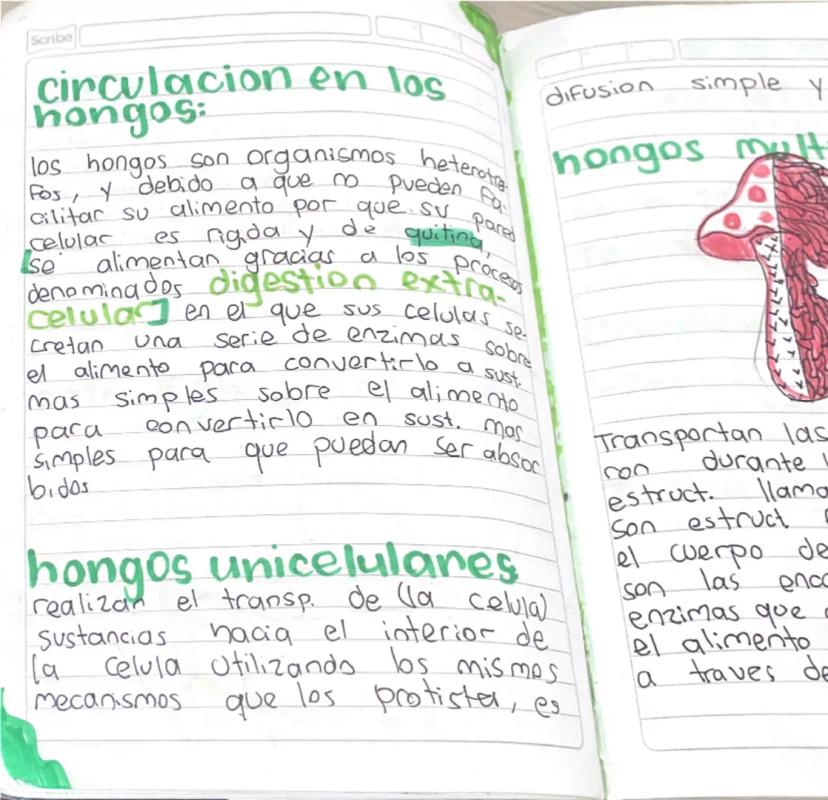 Scribe
circulacion en los
hongos:
los hongos son organismos heterotro
fos, y debido a que no pueden fa-
cilitar su alimento por que su pared
celular es rigida y de quitina,
se alimentan gracias a los procesos
denominados digestion extra-
celular] en el que sus celulas se-
cretan una serie de enzimas sobre
el alimento para convertirlo a sust.
mas simples sobre el alimento
para convertirlo en sust. mas
simples para que puedan ser absor
bidos
hongos unicelulares
realizan el transp. de (la celula)
sustancias hacia el interior de
la celula utilizando los mismos
mecanismos que los protista, es
difusion simple y
hongos mult
Transportan las
ron durante l
estruct. llama
son estruct
el cuerpo de
son las enca
enzimas que
el alimento
a traves de